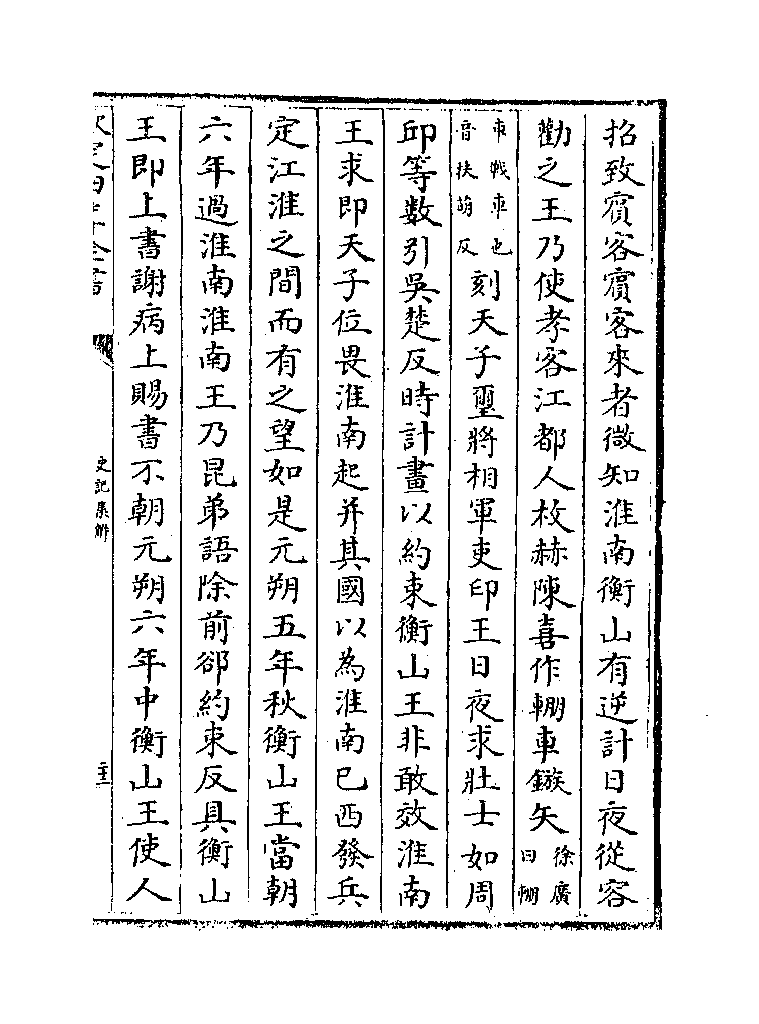 招致賓客賓客來者微知淮南衡山有逆計日夜從容
勸之王乃使孝客江都人枚赫陳喜作輣車鏃矢徐廣曰輣
車戰車也音扶萌反刻天子璽將相軍吏印王日夜求壯士如周
邱等數引吳楚反時計畫以約束衡山王非敢效淮南
王求即天子位畏淮南起并其國以為淮南已西發兵
定江淮之間而有之望如是元朔五年秋衡山王當朝
六年過淮南淮南王乃昆弟語除前郤約束反具衡山
王即上書謝病上賜書不朝元朔六年中衡山王使人
欽定四庫全書
史記集解